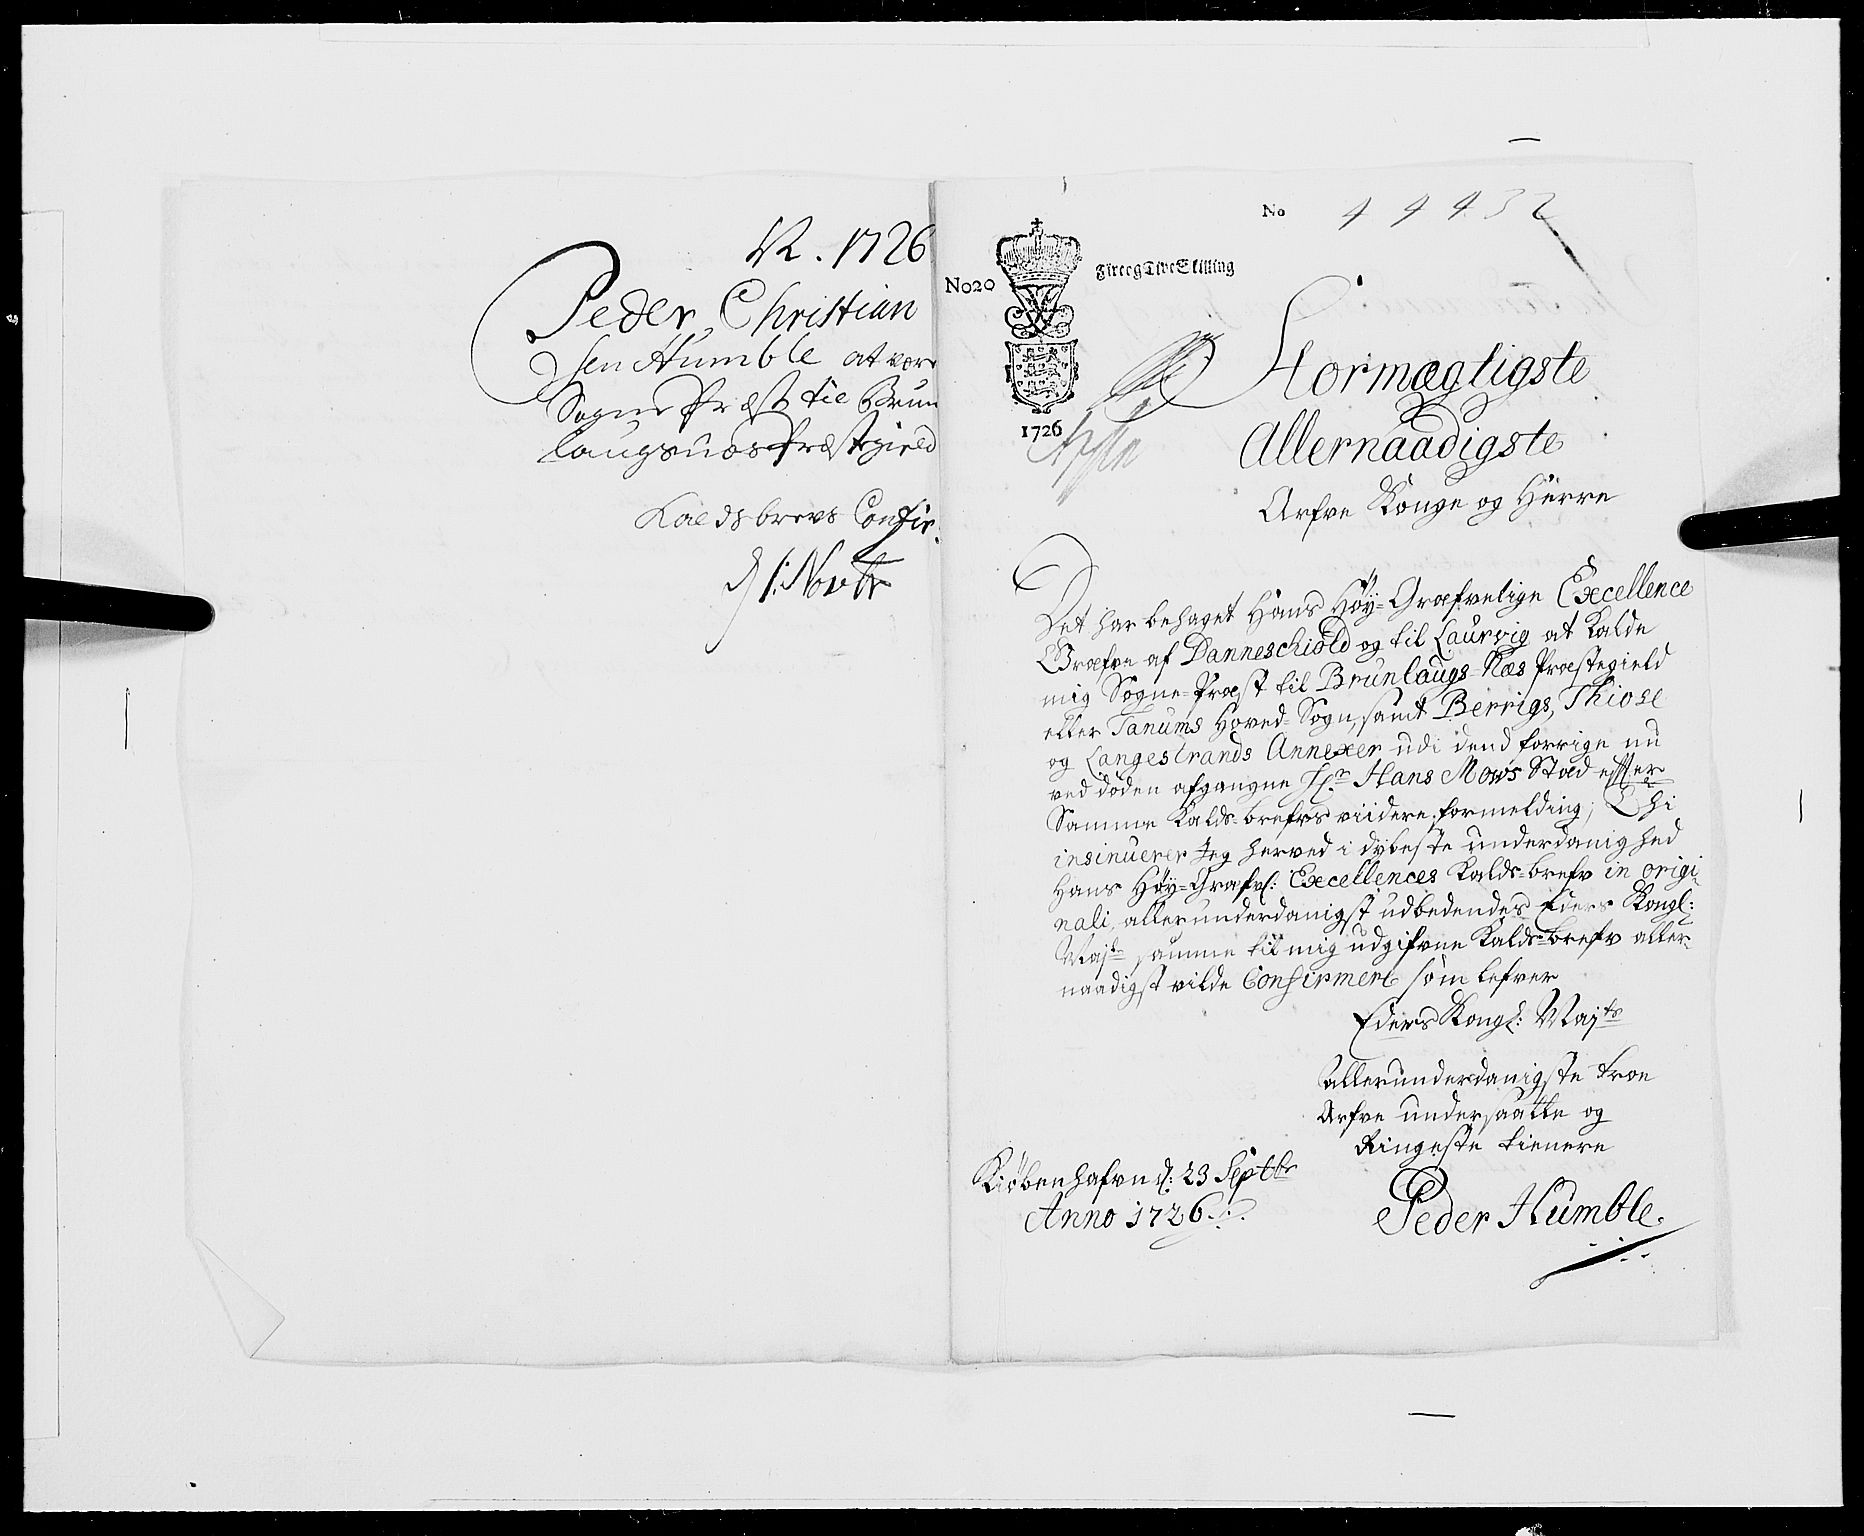 1726
Peder Christian
sen Humble at være
Sogne Præst til Brun
laugsnæs Præstegield
Kaldsbrevs Confir.
d 1. Novbr
No 44432
No 20
Fire og Tive Skilling
1726
Stormægtigste
Allernaadigste
Arfve Konge og Herre
Det har behaget Hans Høy-Grefvelige Excellence
Græfve af Danneschiold og til Laurvig at Kalde
mig Sogne-Præst til Brunlaugs-Næs Præstegield
eller Tanums Hoved-Sogn, samt Berrigs, Thiose
og Langestrands Annexer udi dend forrige nu
ved döden afgangne Hr. Hans Mows Stæd efter
Samme Kalds-brefvs viidere formelding; Thi
insinuerer Jeg herved i dybeste underdanighed
Hans Høy-Grefvl: Excellences Kalds-brefv in origi-
nali, allerunderdanigst udbedendes Eders Kongl:
Majts samme til mig udgifvne Kalds-brefv aller-
naadigst vilde Confirmere som lefver
Eders Kongl: Majts
allerunderdanigste troe
Arfve undersaatte og
Ringeste tienere
Kiöbenhafvn d: 23 Septbr
Anno 1726
Peder Humble.